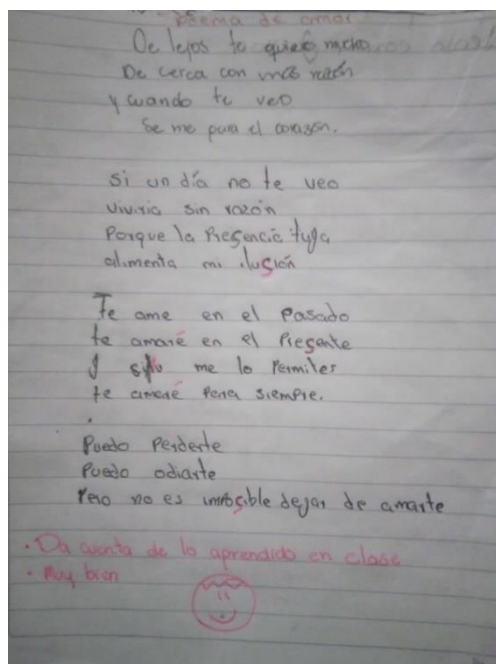 Poema de amor
De lejos te quiero mucho
De cerca con más razón
y cuando te veo
Se me para el corazón.
Si un día no te veo
viviria sin razón
Porque la Presencia tuya
alimenta mi ilusión
Te ame en el Pasado
te amaré en el Presente
y si tu me lo Permites
te amaré Para siempre.
Puedo Perderte
Puedo odiarte
Pero no es imposible dejar de amarte
• Da cuenta de lo aprendido en clase
• Muy bien